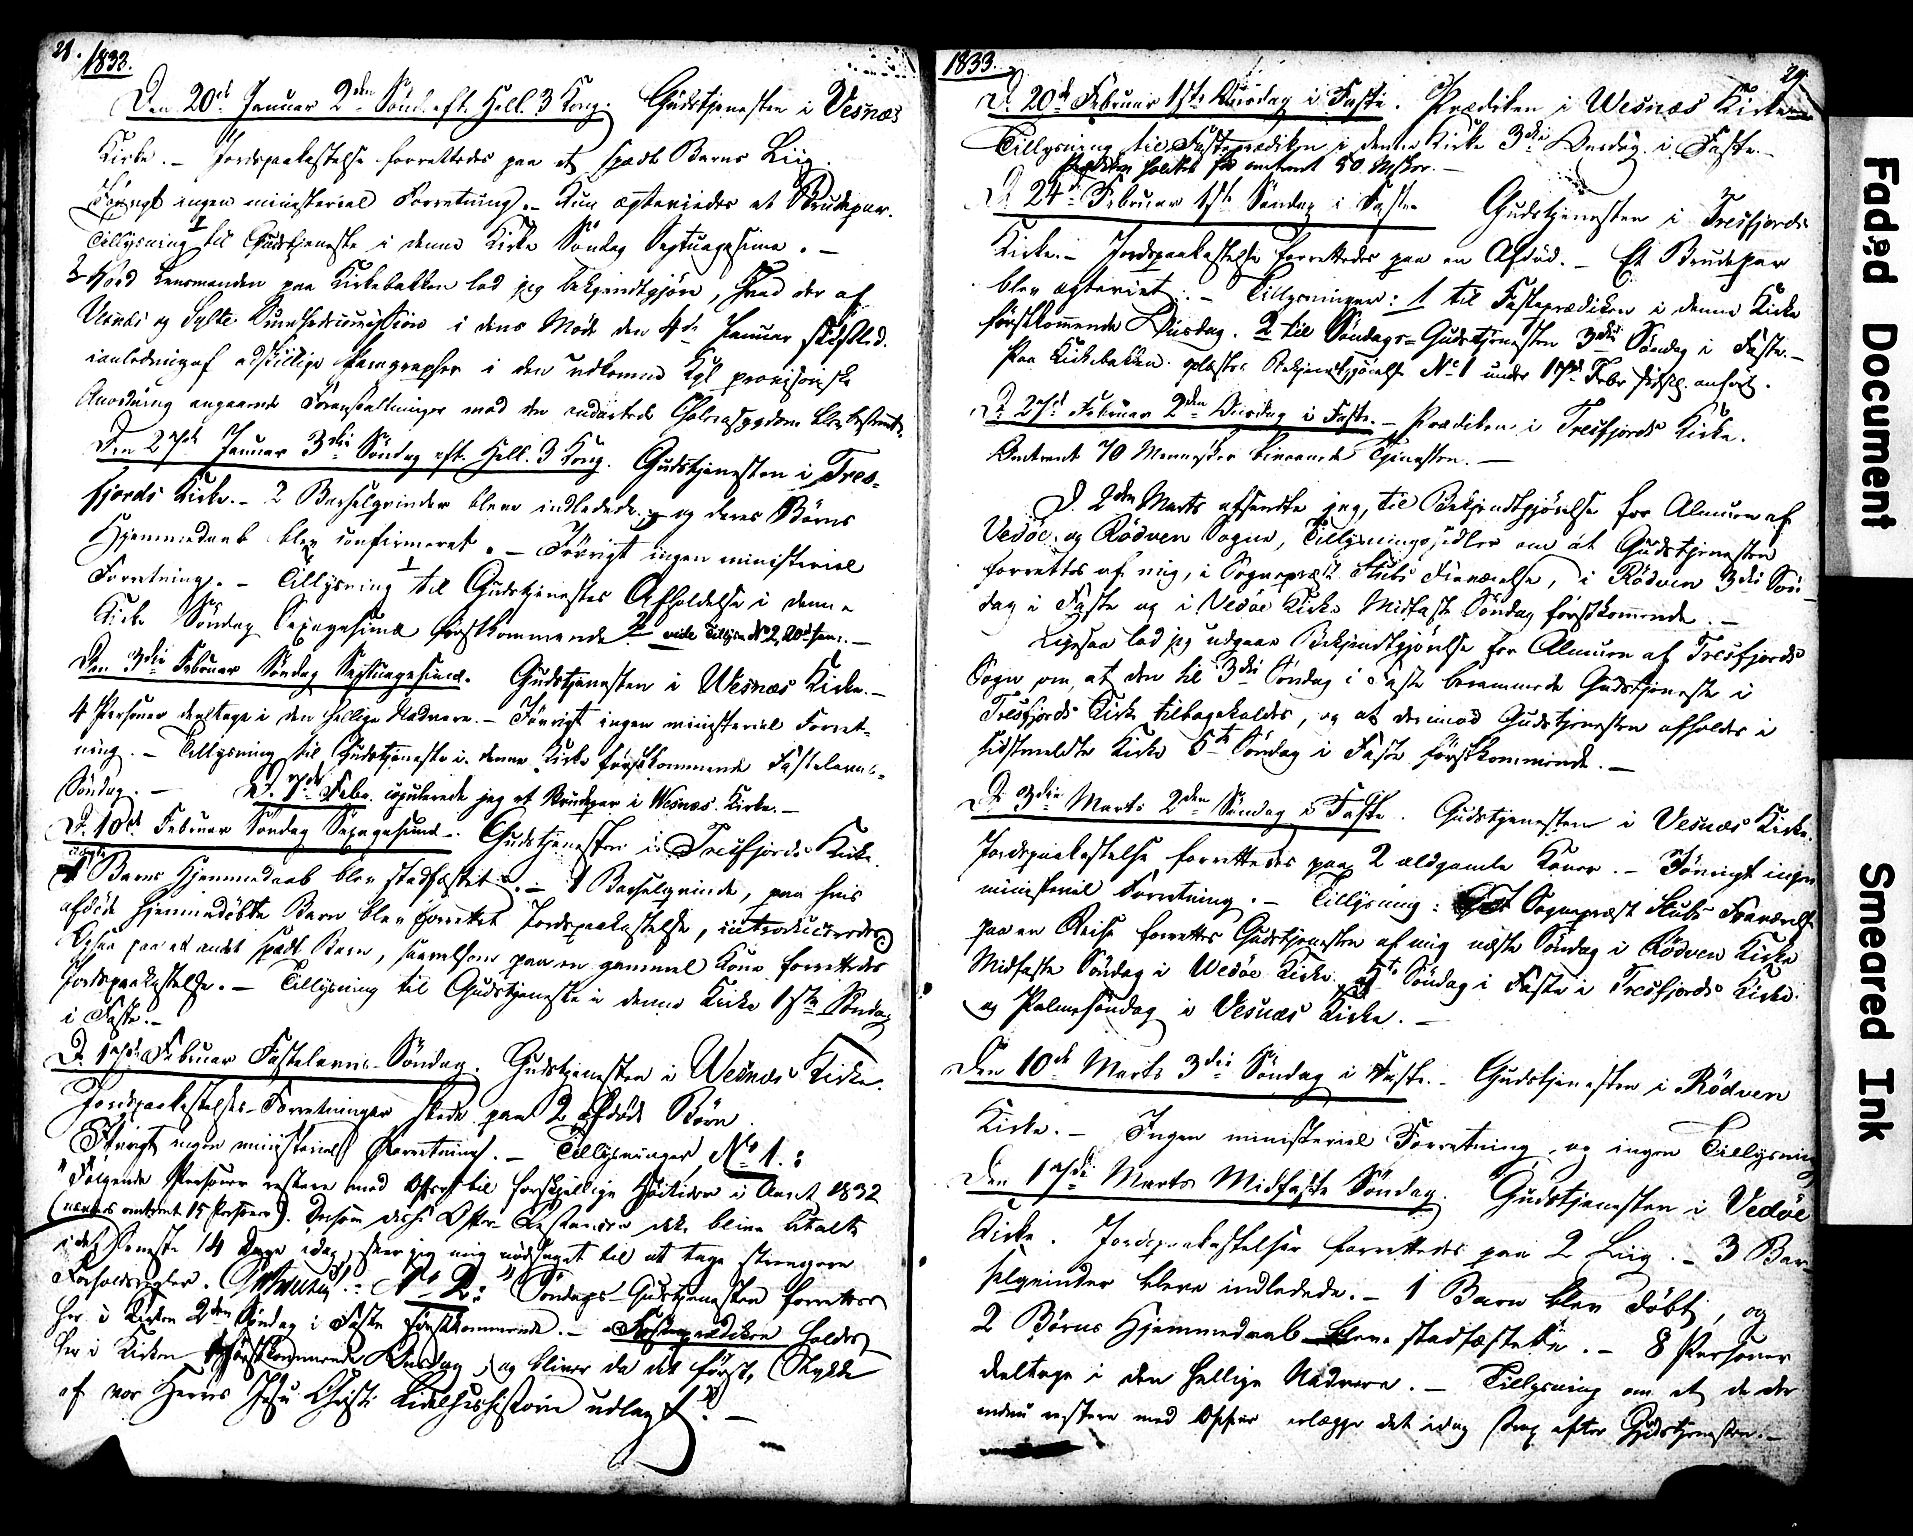 28.
1833.
Den 20de Januar 2den Sønd. eft. Hell. 3 Kong. Gudstjenesten i Vesnæs
Kirke. – Jordspaakastelse forrettedes paa et spædt Barns Liig.
Forøvrigt ingen ministeriel Forretning. – Kun ægteviedes et Brudepar.
Tillysning 1 til Gudstjeneste i denne Kirke Søndag Septuagesima. –
2 Hos Lensmanden paa Kirkebakken lod jeg bekjendtgjøre, hvad der af
Vesnæs og Sylte Sundhedscommission i dens Møde den 4de Januar sidstl.
i anledning af adskillige Paragrapher i den udkomne Kgl. provisoriske
Anordning angaaende Foranstaltninger mod den ondartede Cholerasygdom blev bestemt.
Den 27de Januar 3die Søndag eft. Hell. 3 Kong. Gudstjenesten i Tres-
fjords Kirke. – 2 Barselqvinder bleve indledede og deres Børns
Hjemmedaab blev confirmeret. – Iøvrigt ingen ministeriel
Forretning. – Tillysning 1 til Gudstjenestes Afholdelse i denne
Kirke Søndag Sexagesima førstkommende 2 vide Tillysn. No 2, 20de Jan. –
Den 3die Februar Søndag Septuagesima. Gudstjenesten i Wesnæs Kirke. –
4 Personer deeltoge i den hellige Nadvere. – Iøvrigt ingen ministeriel Forret-
ning. – Tillysning til Gudstjeneste i denne Kirke førstkommende Fastelavns-
Søndag. – D. 7de Febr. copulerede jeg et Brudepar i Wesnæs Kirke. –
D. 10de Februar Søndag Sexagesima. – Gudstjenesten i Tresfjords Kirke.
1 Barns Hjemmedaab blev stadfæstet. – 1 Barselqvinde, paa hvis
afdøde hjemmedøbte Barn blev forrettet Jordspaakastelse, introduceredes
Ogsaa paa et andet spædt Barn, saavelsom paa en gammel Kone forrettedes
Jordspaakastelse. – Tillysning til Gudstjeneste i denne Kirke 1ste Søndag
i Faste. –
D. 17de Februar Fastelavns-Søndag. Gudstjenesten i Wesnæs Kirke.
Jordspaakastelses-Forretninger skede paa 2 afdøde Børn.
Iøvrigt ingen ministeriel Forretning. – Tillysninger No 1.:
"Følgende Personer restere med Offer til forskjellige Høitider i Aaret 1832
(nævnes omtrent 15 Personer). Dersom disse Offer Restancer ikke blive betalte
i det seneste 14 Dage idag, seer jeg mig nødsaget til at tage strengere
Forholdsregler. No 2: "Søndags-Gudstjenesten forrettes
her i Kirken 2den Søndag i Faste førstkommende. – Fasteprædiken holdes
her i Kirken førstkommende Onsdag, og bliver da det første Stykke
af vor Herres Jesu Christi Lidelseshistorie udlagt". –
1833.
29.
D. 20de Februar 1ste Onsdag i Faste. Prædiken i Wesnæs Kirke.
Tillysning til Fasteprædiken i denne Kirke 3die Onsdag i Faste. –
Prædiken holdtes for omtrent 50 Msker. –
D. 24de Februar 1ste Søndag i Faste. Gudstjenesten i Tresfjords
Kirke. – Jordspaakastelse forrettedes paa en Afdød. – Et Brudepar
blev ægteviet. – Tillysninger: 1 til Fasteprædiken i denne Kirke
førstkommende Onsdag. 2 til Søndags-Gudstjenesten 3die Søndag i Faste. –
Paa Kirkebakken oplæstes Bekjendtgjørelse No 1 under 17de Febr. sidstl. anført.
D. 27de Februar 2den Onsdag i Faste. – Prædiken i Tresfjords Kirke.
Omtrent 70 Mennesker bivaanede Tjenesten. –
D. 2den Marts afsendte jeg, til Bekjendtgjørelse for Almuen af
Vedøe og Rødven Sogne, Tillysningssedler om at Gudstjenesten
forrettes af mig, i Sognepræst Stubs Fraværelse, i Rødven 3die Søn-
dag i Faste og i Vedøe Kirke Midfaste Søndag førstkommende. –
Ligesaa lod jeg udgaae Bekjendtgjørelse for Almuen af Tresfjords
Sogn om, at den til 3die Søndag i Faste berammede Gudstjeneste i
Tresfjords Kirke tilbagekaldes, og at derimod Gudstjenesten afholdes i
sidstmeldte Kirke 5te Søndag i Faste førstkommende. –
D. 3die Marts 2den Søndag i Faste. Gudstjenesten i Vesnæs Kirke.
Jordspaakastelse forrettedes paa 2 ældgamle Koner. – Iøvrigt ingen
ministeriel Forretning. – Tillysning: Sognepræst Stubs Fraværelse
paa en Reise forrettes Gudstjenesten af mig næste Søndag i Rødven Kirke
Midfaste Søndag i Wedøe Kirke, 5te Søndag i Faste i Tresfjords Kirke
og Palmesøndag i Vesnæs Kirke. –
Den 10de Marts 3die Søndag i Faste. – Gudstjenesten i Rødven
Kirke. – Ingen ministeriel Forretning, og ingen Tillysning
Den 17de Marts Midfaste Søndag. Gudstjenesten i Vedøe
Kirke. Jordspaakastelser forrettedes paa 2 Liig. – 3 Bar-
selqvinder bleve indledede. – 1 Barn blev døbt, og
2 Børns Hjemmedaab bleve stadfæstede. – 8 Personer
deeltoge i den hellige Nadvere. – Tillysning om at de der
endnu restere med Offer erlægge det idag strax efter Gudstjenesten. –
Faded Document
Smeared Ink